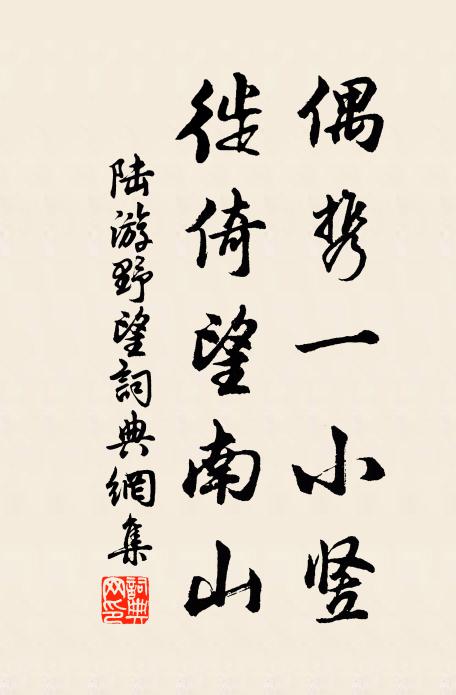 偶携一小竖
徙倚望南山
陆游野望詞典網集
詞典网印